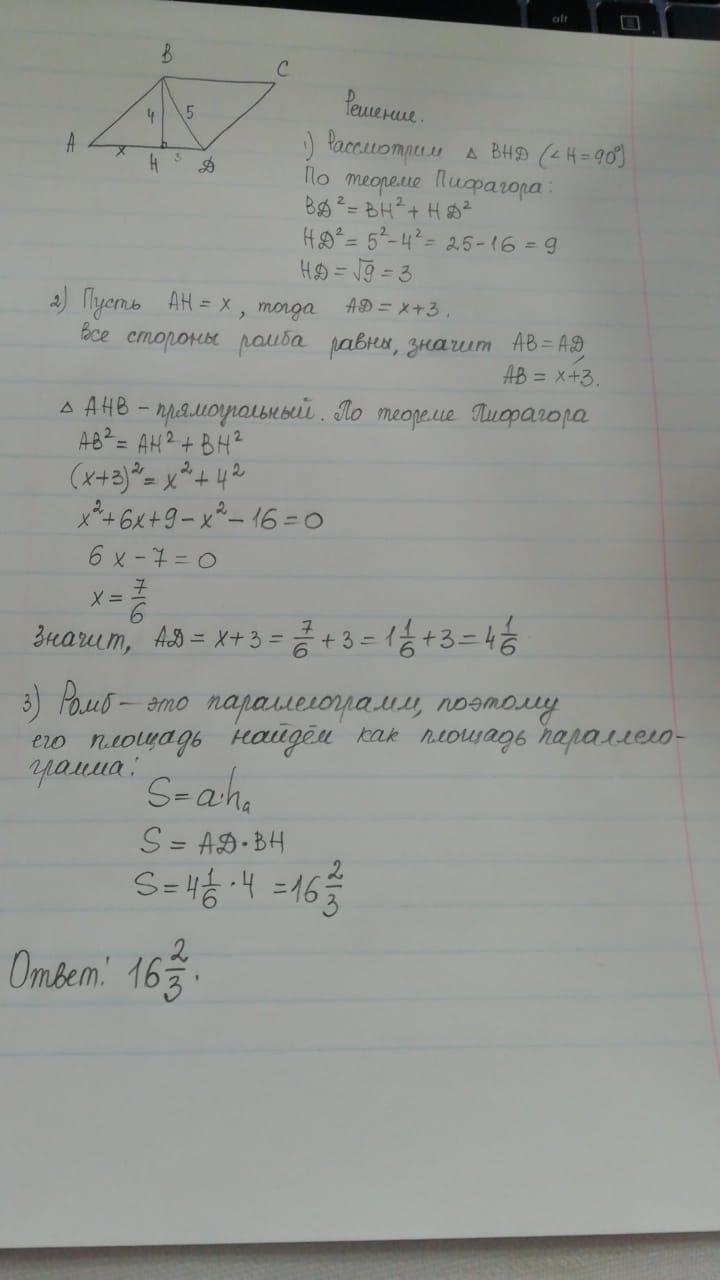 alt
B
C
4
5
A
x
H
3
D
Решение.
1) Рассмотрим △ BHD (∠H=90°)
По теореме Пифагора:
BD²=BH²+HD²
HD²=5²-4²=25-16=9
HD=√9=3
2) Пусть AH=x, тогда AD=x+3.
Все стороны ромба равны, значит AB=AD,
AB=x+3.
△ AHB - прямоугольный. По теореме Пифагора
AB²=AH²+BH²
(x+3)²=x²+4²
x²+6x+9-x²-16=0
6x-7=0
x=7/6
Значит, AD=x+3=7/6+3=1 1/6+3=4 1/6
3) Ромб - это параллелограмм, поэтому
его площадь найдём как площадь параллело-
грамма:
S=a·hₐ
S=AD·BH
S=4 1/6·4=16 2/3
Ответ: 16 2/3.